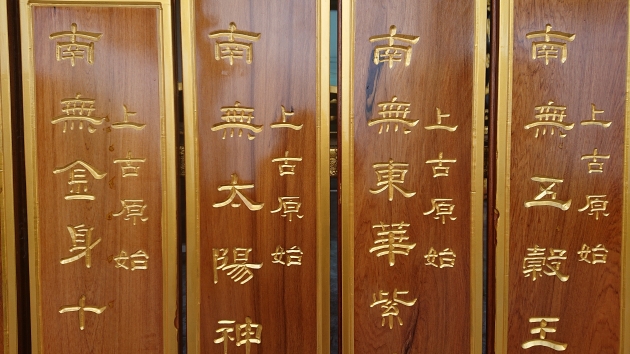 上古原始
南無五穀王
上古原始
南無東華紫
上古原始
南無太陽神
上古原始
南無金身十